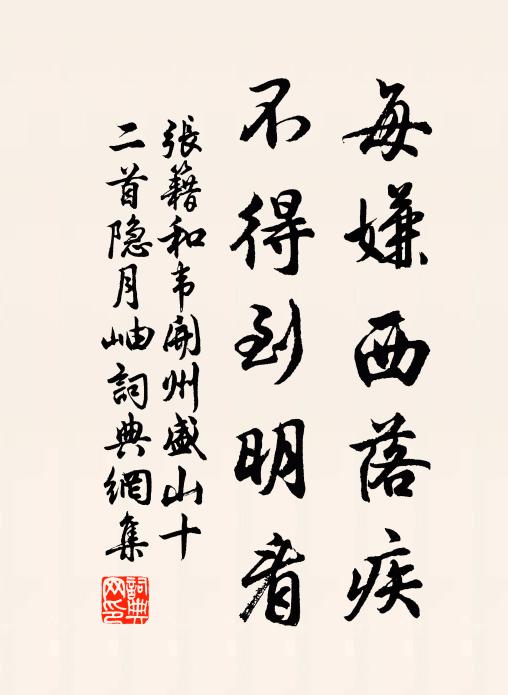 每嫌西落疾
不得到明看
張籍和韦開州盛山十
二首隐月岫詞典網集
詞典
网印